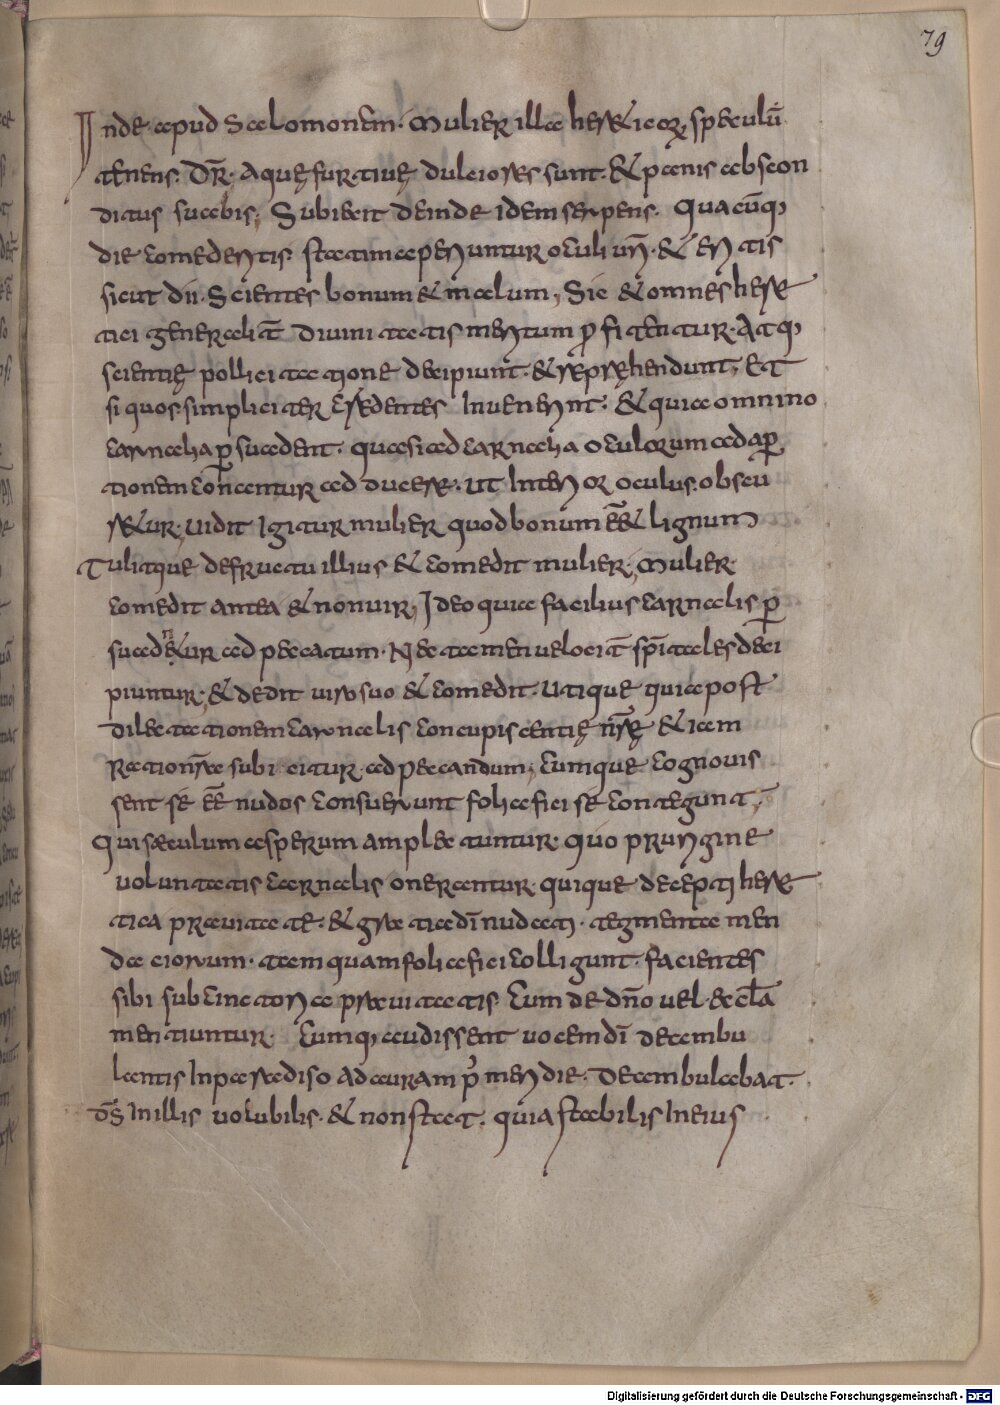 79
Inde apud Salomonem. Mulier illa heretico℞ speculū
tenens. Dr̄. Aquę furtiuę dulciores sunt. & panis abscon
ditus suabis; Subiecit deinde idem serpens. Quacūq;
die comederitis. statim aperiuntur oculi ur̄i. & eritis
sicut dii. Scientes bonum & malum; Sic & omnes here
tici generalit̄ diuinitatis meritum ꝓfitentur. Atq;
scientię pollicitatione decipiunt. & repręhendunt; Et
si quos simpliciter credentes inuenerint. & quia omnino
carnalia ꝑsuadent. quasi ad carnalia oculorum adaꝑ
tionem conantur adducere. ut interior oculus. obscu
r&ur; uidit igitur mulier quod bonum eēt lignum
Tulitque de fructu illius & comedit mulier; Mulier
comedit antea & non uir; Ideo quia facilius carnalis ꝑ
suadentur ad peccatum. Nec tamen uelocit̄ sp̄itales deci
piuntur; & dedit uiro suo & comedit. Utique quia post
dilectationem carnalis concupiscentię nr̄ę & iam
rationr̄a subicitur ad peccandum; Cumque cognouis
sent se eē nudos consuerunt folia fici se contegunt;
Qui sæculum asperum amplectuntur. quo prurigine
uoluntatis carnalis onerantur. quique decepti here
tica prauitate. & gratia dī nudati. tegmenta men
daciorum. tamquam folia fici colligunt. facientes
sibi subcinctoria prauitatis. Cum de dn̄o uel æccl̄a
mentiuntur. Cumq; audissent uocem dī deambu
lantis in paradiso ad auram p̄ meridie. Deambulabat.
d̄s in illis uolubilis. & non stat. quia stabilis in eius
Digitalisierung gefördert durch die Deutsche Forschungsgemeinschaft - DFG